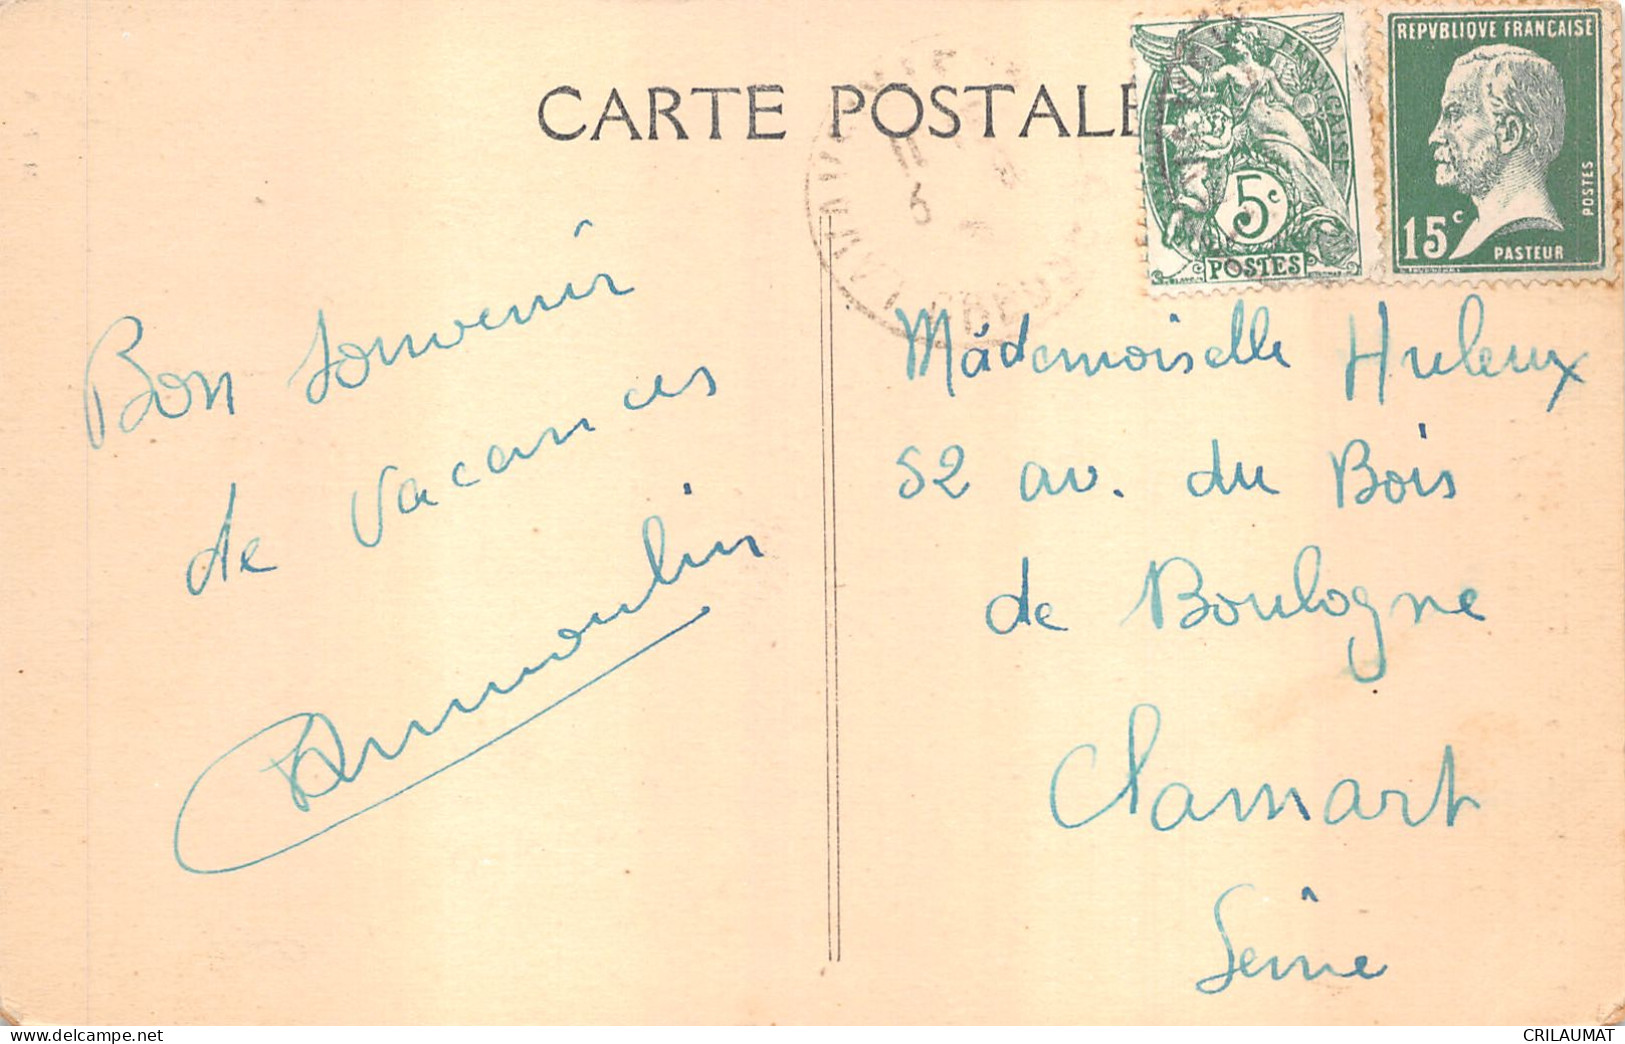 CARTE POSTALE
REPVBLIQVE FRANÇAISE
POSTES
15c
PASTEUR
FRANÇAISE
5c
POSTES
Bon souvenir
de vacances
Dumoulin
Mademoiselle Huleux
52 av. du Bois
de Boulogne
Clamart
Seine
CRILAUMAT